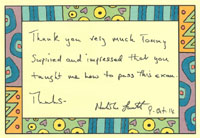 Thank you very much Tommy
Supired and impressed that you
taught me how to pass this exam
Thanks-